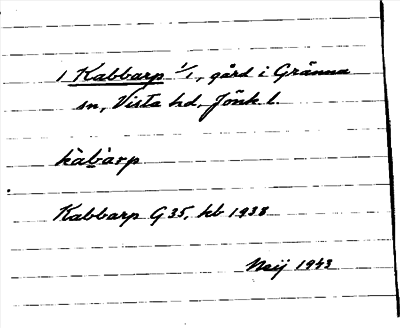 1 Kabbarp 1/1, gård i Gränna
sn, Vista hd, Jönk l.
kàb̀arp
Kabbarp G 35, kb 1938
Neij 1943